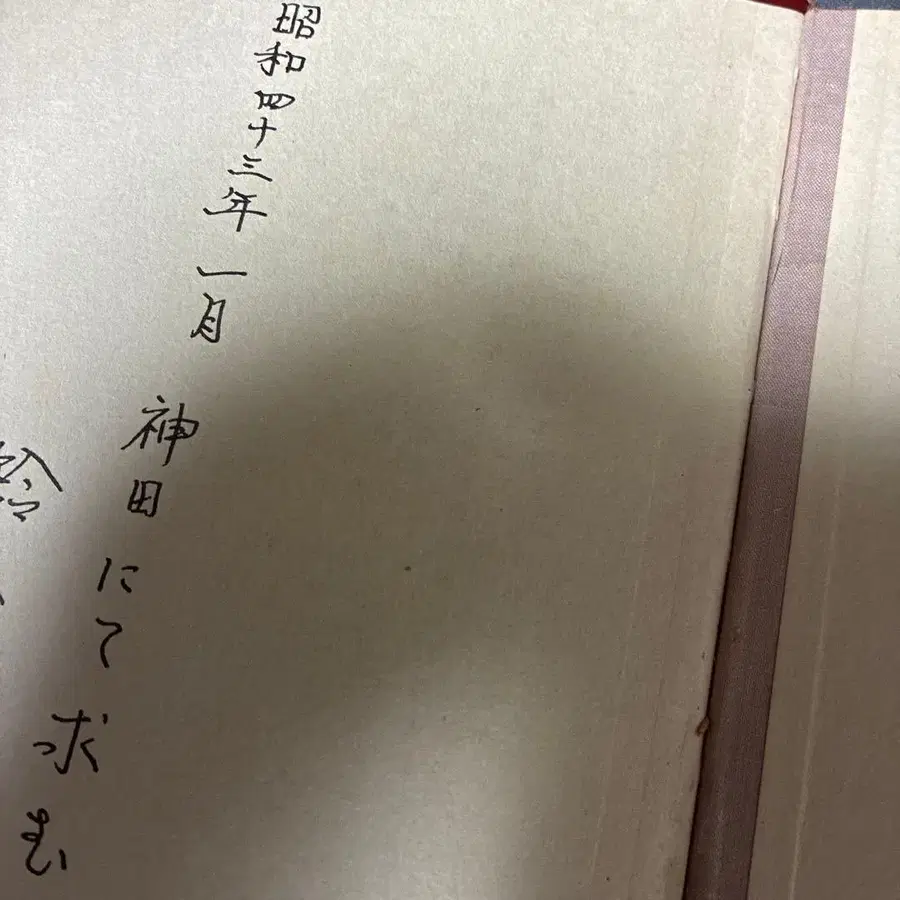 昭和四十三年 一月 神田にて 求む